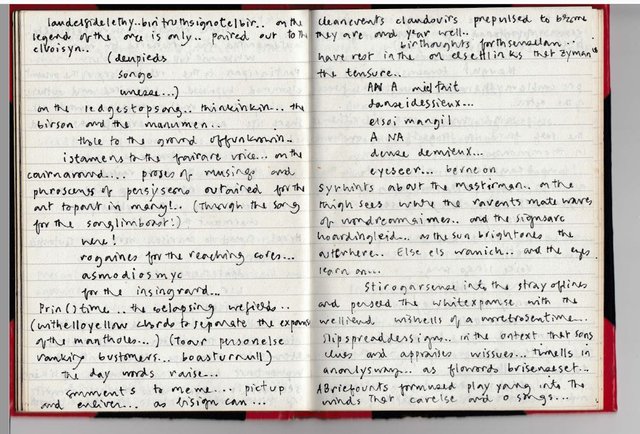 landelsidelethy.. biritruthsignotelbir.. on the
legend of the one is only.. paired out to the
elvoisyn..
(deupieds
songe
unesse...)
on the ledgestopsong.. thinkinkin... the
birson and the manumen..
thole to the ground offunknown..
istamens to the fairare voice... on the
cairnaround.... proses of musings and
phroseings of persysens outained for the
art to part in many!.. (Through the song
for the songlimboast!)
here!
rogaines for the reaching cores...
asmodiosmyc
for the insingrand...
Prin()time.. the
wefields..
(withelloyellow chords to separate the expans
of the mantholes...) (Toour personelse
rankiry bustomers.. boasturnull)
the day words raise...
comments to meme.... pict up
and enliver... as bisign can...
cleanevents clandovirs prepulsed to become
they are and year well..
birthoughts forthsenselan..
have rest in the on elsethinks that zyman is
the tensure..
AN A mielfait
danseidessieux...
elsoi mangil
A NA
dense demieux...
eyeseer.. berne on
Syphints about the mastorman.. on the
thigh sees where the ravents mate waves
of wondreamaimes.. and the signsare
hoardingleid... as the sun brightones the
. Else els wranich... and the eyes
learn on...
Stirogarsense into the stray oflines
and pensed the whitexpanse with the
welliend wishells of a moretrosentime...
Slipspreaddessigns.. in the ontext that sons
clues and appraises wissues... tunells in
anonlysway... as flowords brisenseset...
A Briefounts formused play yang into the
winds that carelse and o songs...